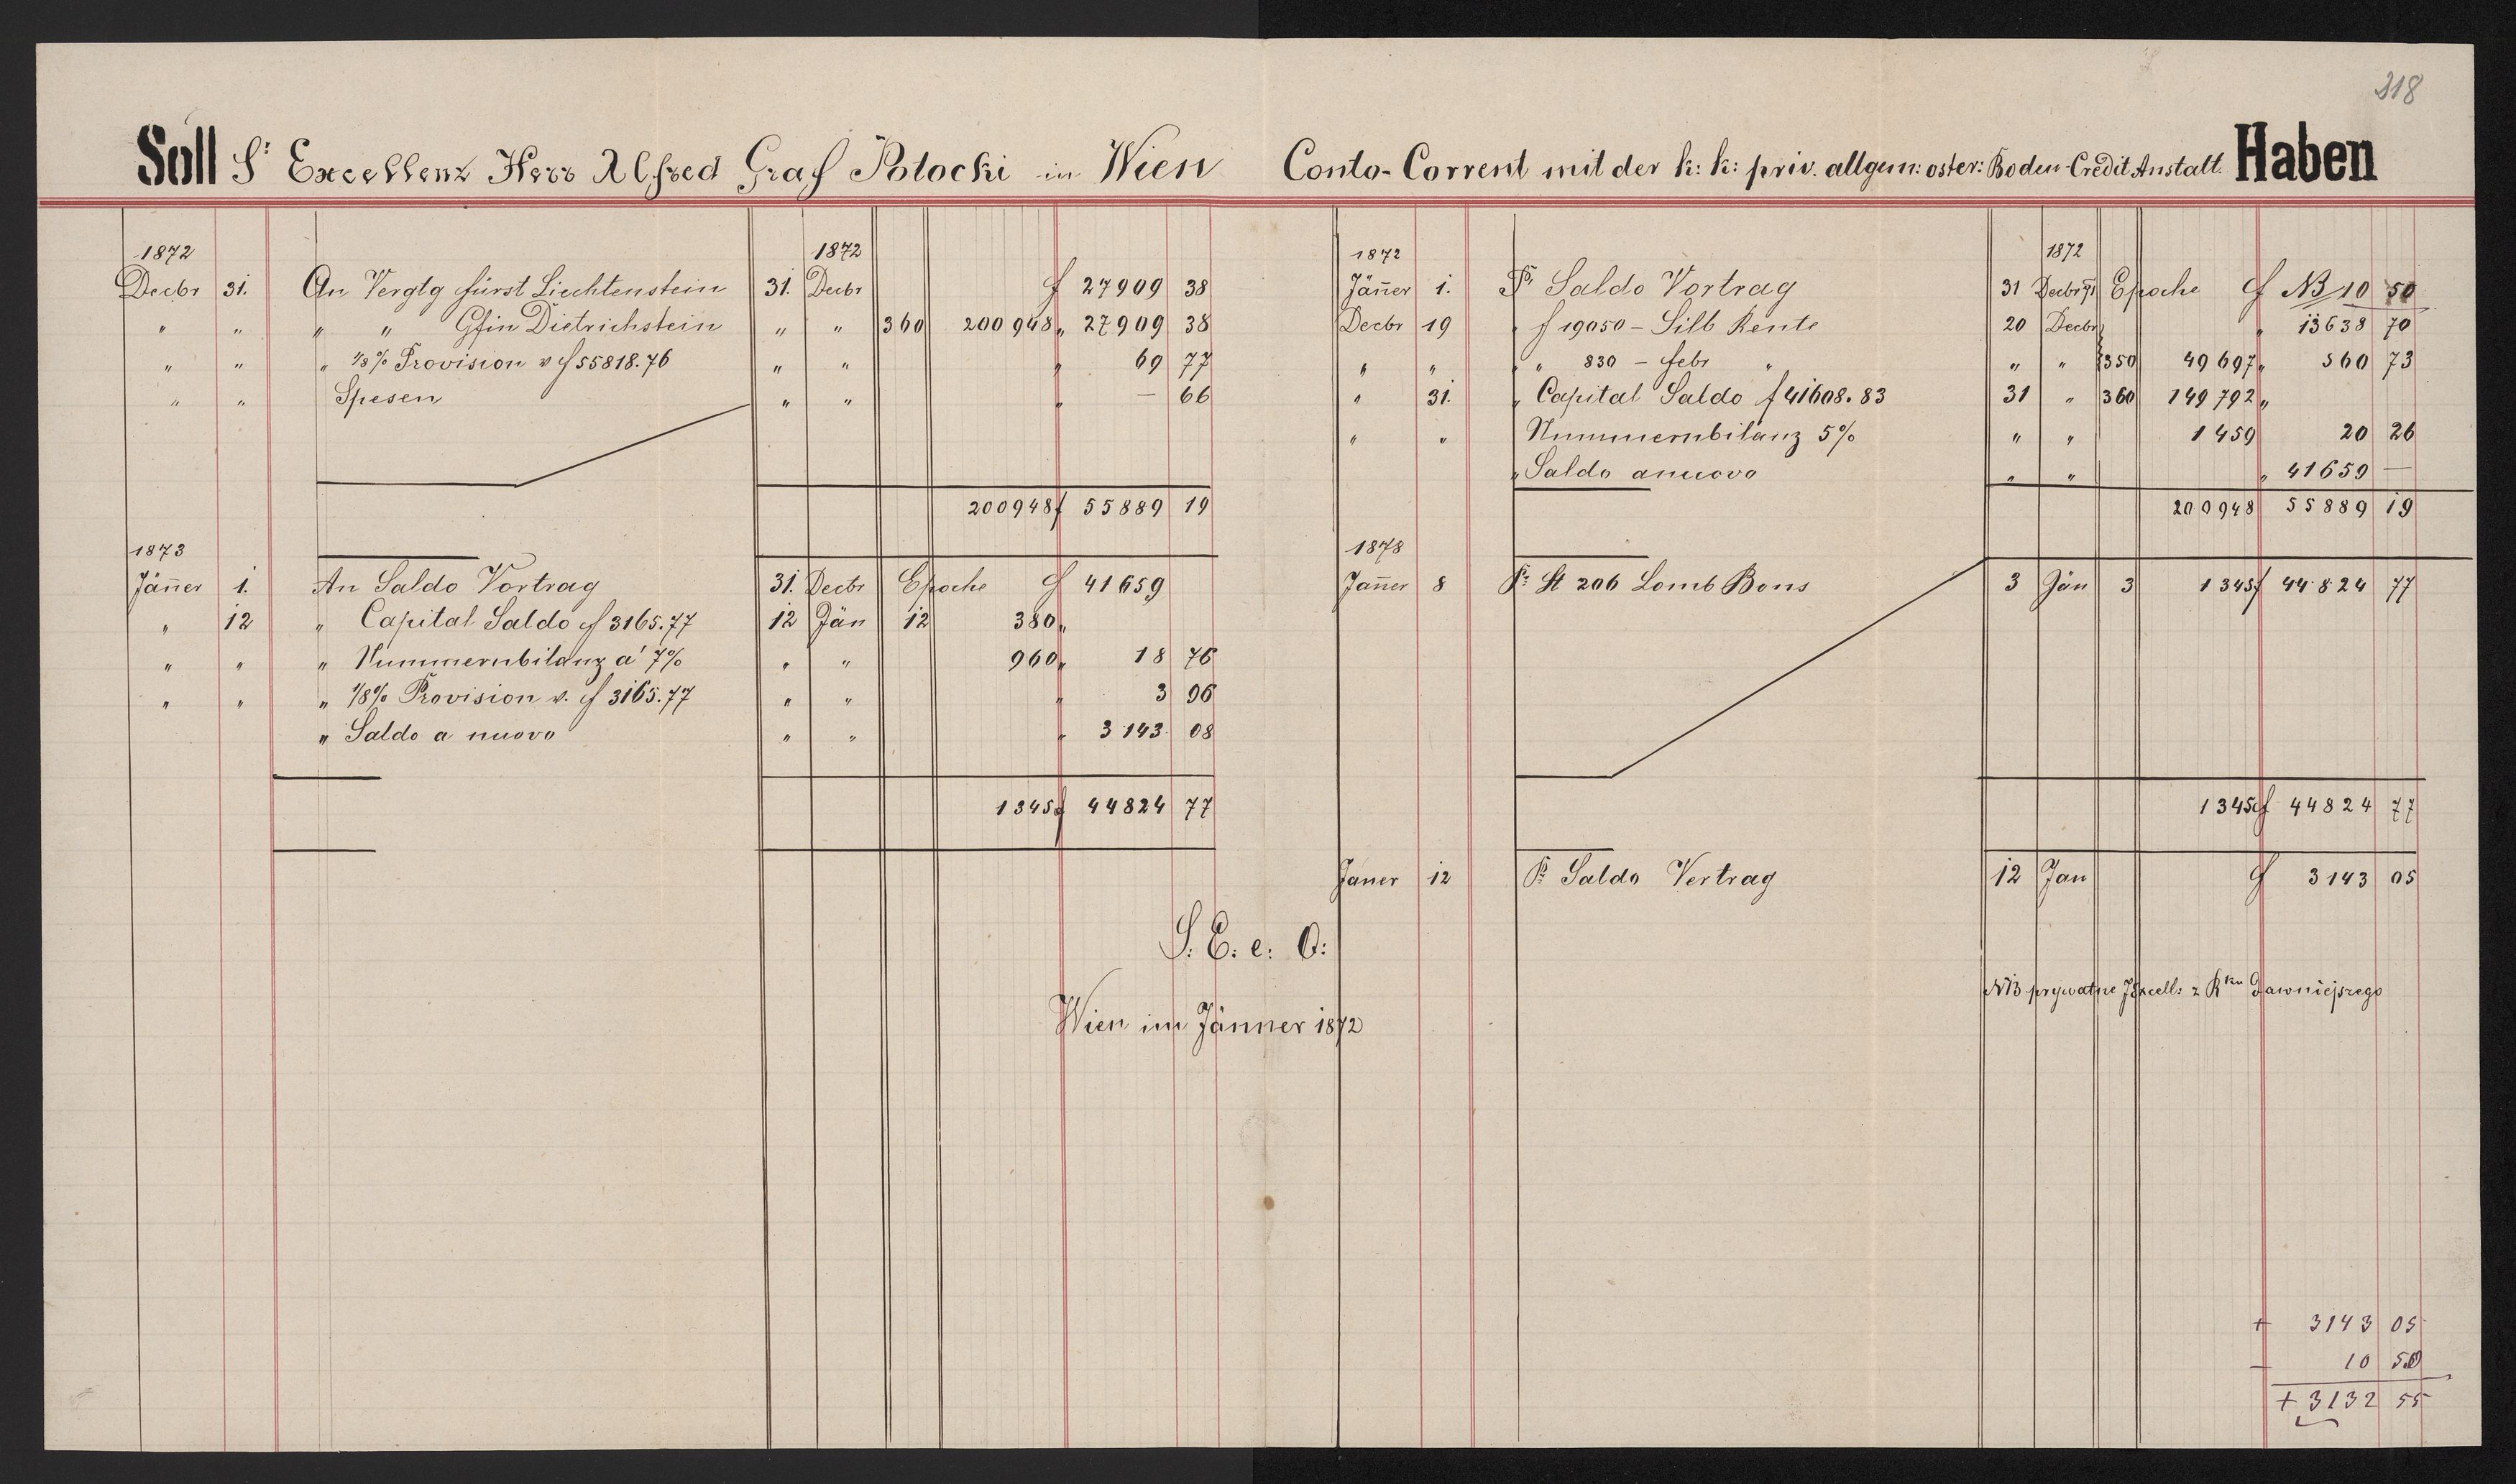 218
Soll Sr Excellenz Herr Alfred Graf Potocki in Wien Conto-Corrent mit der k: k: priv. allgem: oster: Boden-Credit Anstalt. Haben
1872 1872
Decbr 31. An Vergtg fürst Liechtenstein 31. Decbr f 27909 38
" " " " Gfin Dietrichstein " " 360 200948 " 27909 38
" " " 1/8% Provision v f 55818.76 " " " 69 77
" " Spesen " " " — 66
200948 f 55889 19
1873
Jäner 1. An Saldo Vortrag 31. Decbr Epoche f 41659
" 12 " Capital Saldo f 3165.77 12 Jän 12 380 "
" " " Nummernbilanz a' 7% " " 960 " 18 76
" " " 1/8% Provision v. f 3165.77 " " " 3 96
" Saldo a nuovo " " " 3143 08
1345 f 44824 77
1872 1872
Jäner 1. Pr Saldo Vortrag 31 Decbr 71 Epoche f NB 10 50
Decbr 19 " f 19050 — Silb Rente 20 Decbr " 13638 70
" " " " 830 — febr " " " 350 49697 " 560 73
" 31. " Capital Saldo f 41608.83 31 " 360 149792 "
" " Nummernbilanz 5% " " 1459 20 26
" Saldo anuovo " " " 41659 —
200948 55889 19
1878
Jäner 8 Pr St 206 Lomb Bons 3 Jän 3 1345 f 44824 77
1345 f 44824 77
Janer 12 Pr Saldo Vertrag 12 Jan f 3143 05
S. E. e. O:
Wien im Jänner 1872
NB prywatne JExcell: z Rku Dawniejszego
+ 3143 05
— 10 50
+ 3132 55